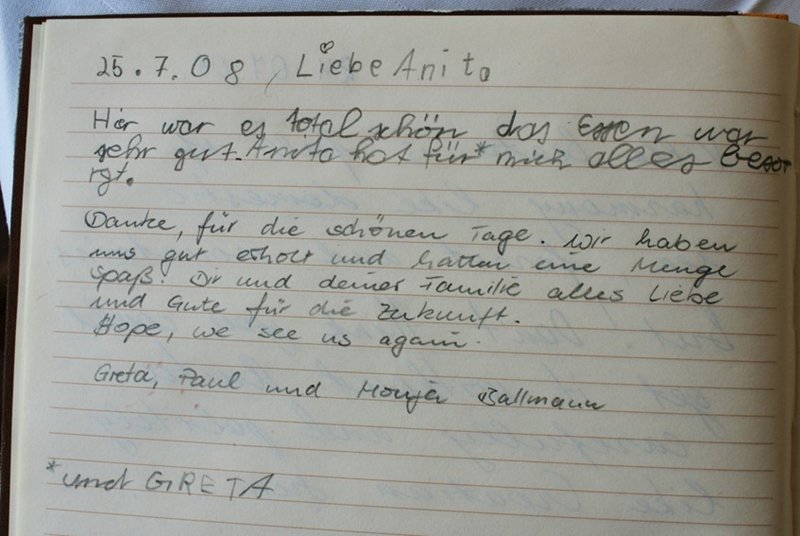 25.7.08, Liebe Anita
Hier war es total schön das Essen war
sehr gut. Anita hat für* mich alles besor
rgt.
Danke, für die schönen Tage. Wir haben
uns gut erholt und hatten eine Menge
Spaß. Dir und deiner Familie alles Liebe
und Gute für die Zukunft.
Hope, we see us again.
Greta, Paul und Monja Ballmann
*und GRETA